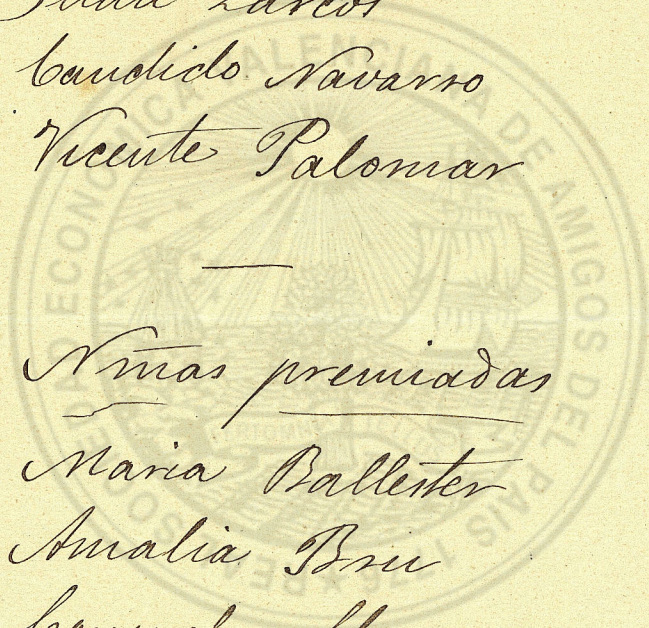 Juan Larcos
Candido Navarro
Vicente Palomar
—
Niñas premiadas
Maria Ballester
Amalia Bru
REAL SOCIEDAD ECONOMICA VALENCIANA DE AMIGOS DEL PAIS